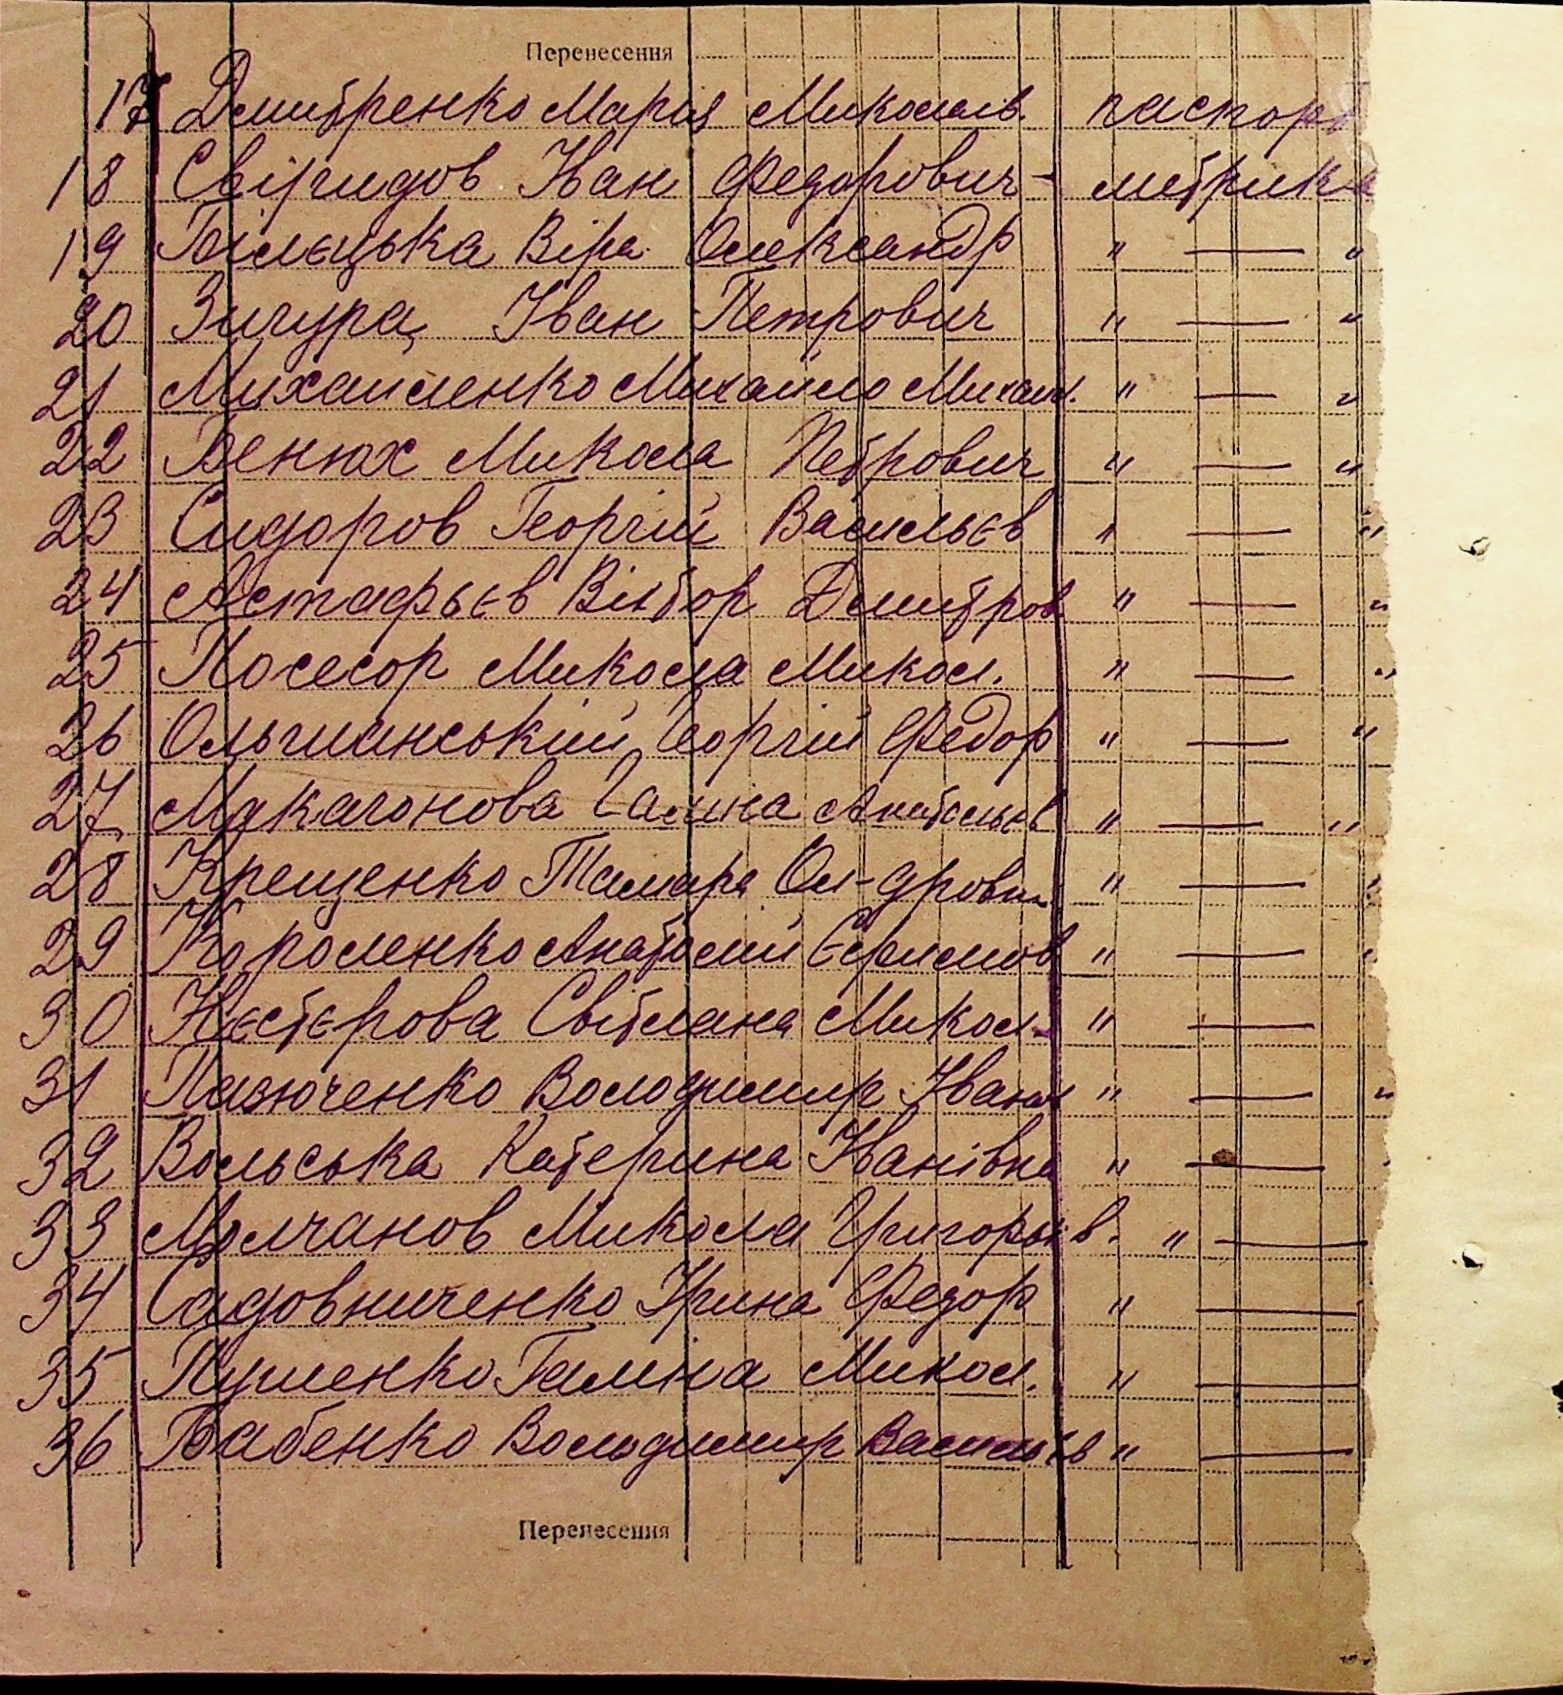 Перенесення
17 Дмитренко Мария Миколаів. паспорт
18 Свіридов Іван Федорович - метрика
19 Білецька Віра Олександр " — "
20 Зигура Іван Петрович " — "
21 Михайленко Михайло Михайл. " — "
22 Венюх Микола Петрович " — "
23 Сидоров Георгій Васильєв " — "
24 Астафьєв Віктор Дмитров " — "
25 Посесор Микола Микол. " — "
26 Ольшанський Георгій Федор " — "
27 Макагонова Галина Анатольєв " — "
28 Крещенко Тамара Ол-дровн " — "
29 Короленко Анатолий Єфимов " — "
30 Нєстєрова Світлана Микол. " —
31 Володимир Іван " — "
32 Вольська Катерина Іванівна " —
33 Молчанов Микола Григорьєв. " —
34 Садовниченко Ірина Федор " —
35 Галіна Микол. " —
36 Бабенко Володимир Васильєв " —
Перенесення